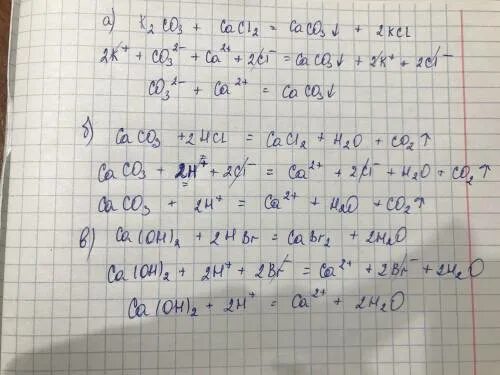 а) K₂CO₃ + CaCl₂ = CaCO₃↓ + 2KCl
2K⁺ + CO₃²⁻ + Ca²⁺ + 2Cl⁻ = CaCO₃↓ + 2K⁺ + 2Cl⁻
CO₃²⁻ + Ca²⁺ = CaCO₃↓
б) CaCO₃ + 2HCl = CaCl₂ + H₂O + CO₂↑
CaCO₃ + 2H⁺ + 2Cl⁻ = Ca²⁺ + 2Cl⁻ + H₂O + CO₂↑
CaCO₃ + 2H⁺ = Ca²⁺ + H₂O + CO₂↑
в) Ca(OH)₂ + 2HBr = CaBr₂ + 2H₂O
Ca(OH)₂ + 2H⁺ + 2Br⁻ = Ca²⁺ + 2Br⁻ + 2H₂O
Ca(OH)₂ + 2H⁺ = Ca²⁺ + 2H₂O